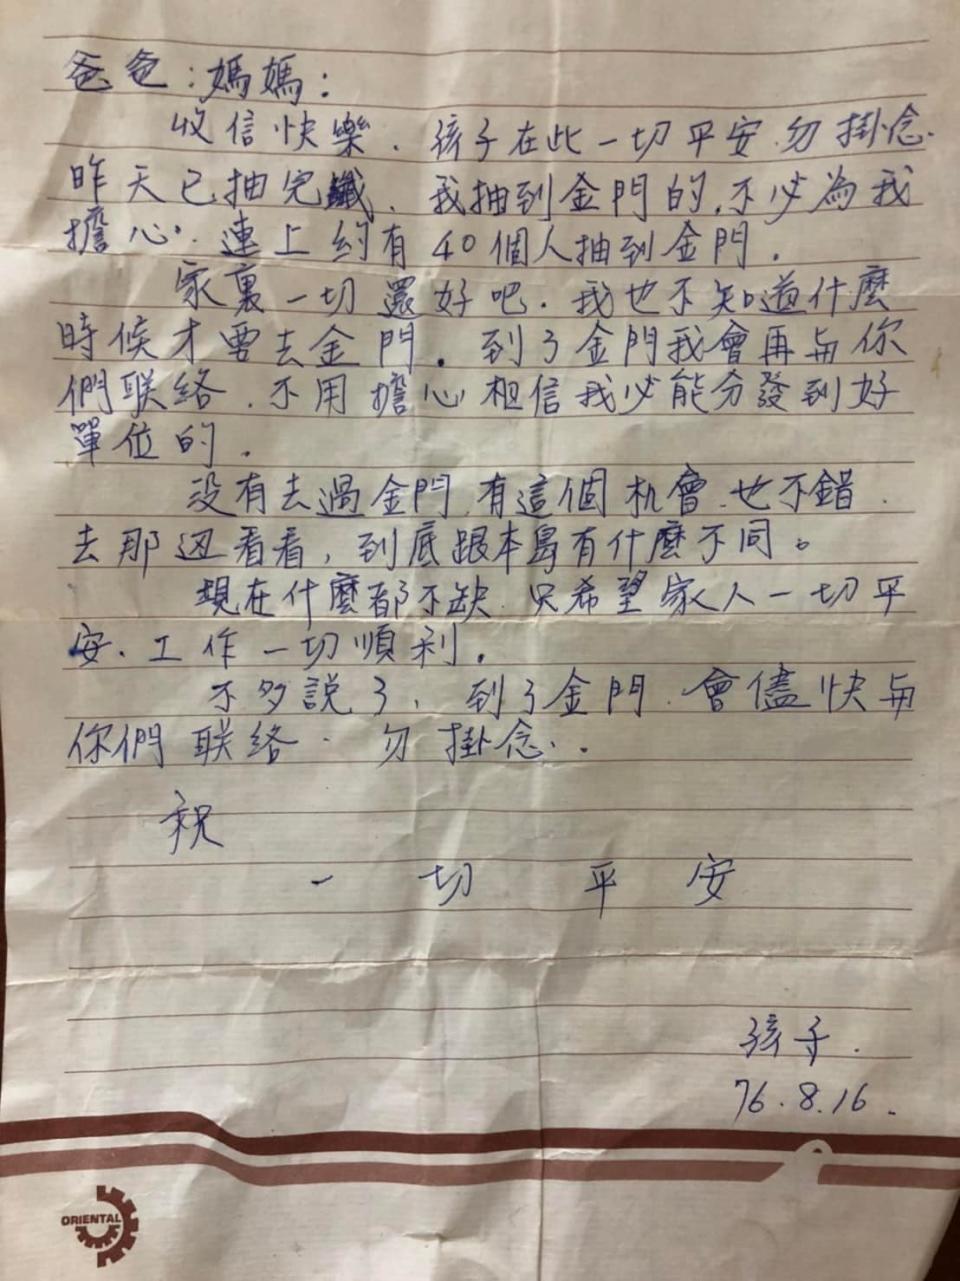 爸爸:媽媽:
收信快樂.孩子在此一切平安.勿掛念.
昨天已抽完籤.我抽到金門的.不必為我
擔心.連上約有40個人抽到金門.
家裏一切還好吧.我也不知道什麼
時候才要去金門.到了金門我會再与你
們联絡.不用擔心相信我必能分發到好
單位的.
没有去過金門.有這個机會.也不錯.
去那边看看,到底跟本島有什麼不同。
現在什麼都不缺.只希望家人一切平
安.工作一切順利.
不多說了,到了金門.會儘快与
你們联絡.勿掛念..
祝
一切平安
孩子.
76.8.16.
ORIENTAL